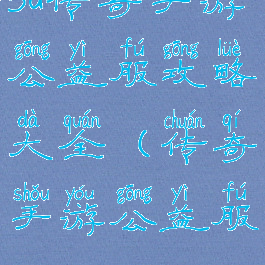 传奇手游
gōng yì fú gōng lüè
公益服攻略
dà quán chuán qí
大全(传奇
shǒu yóu gōng yì fú
手游公益服